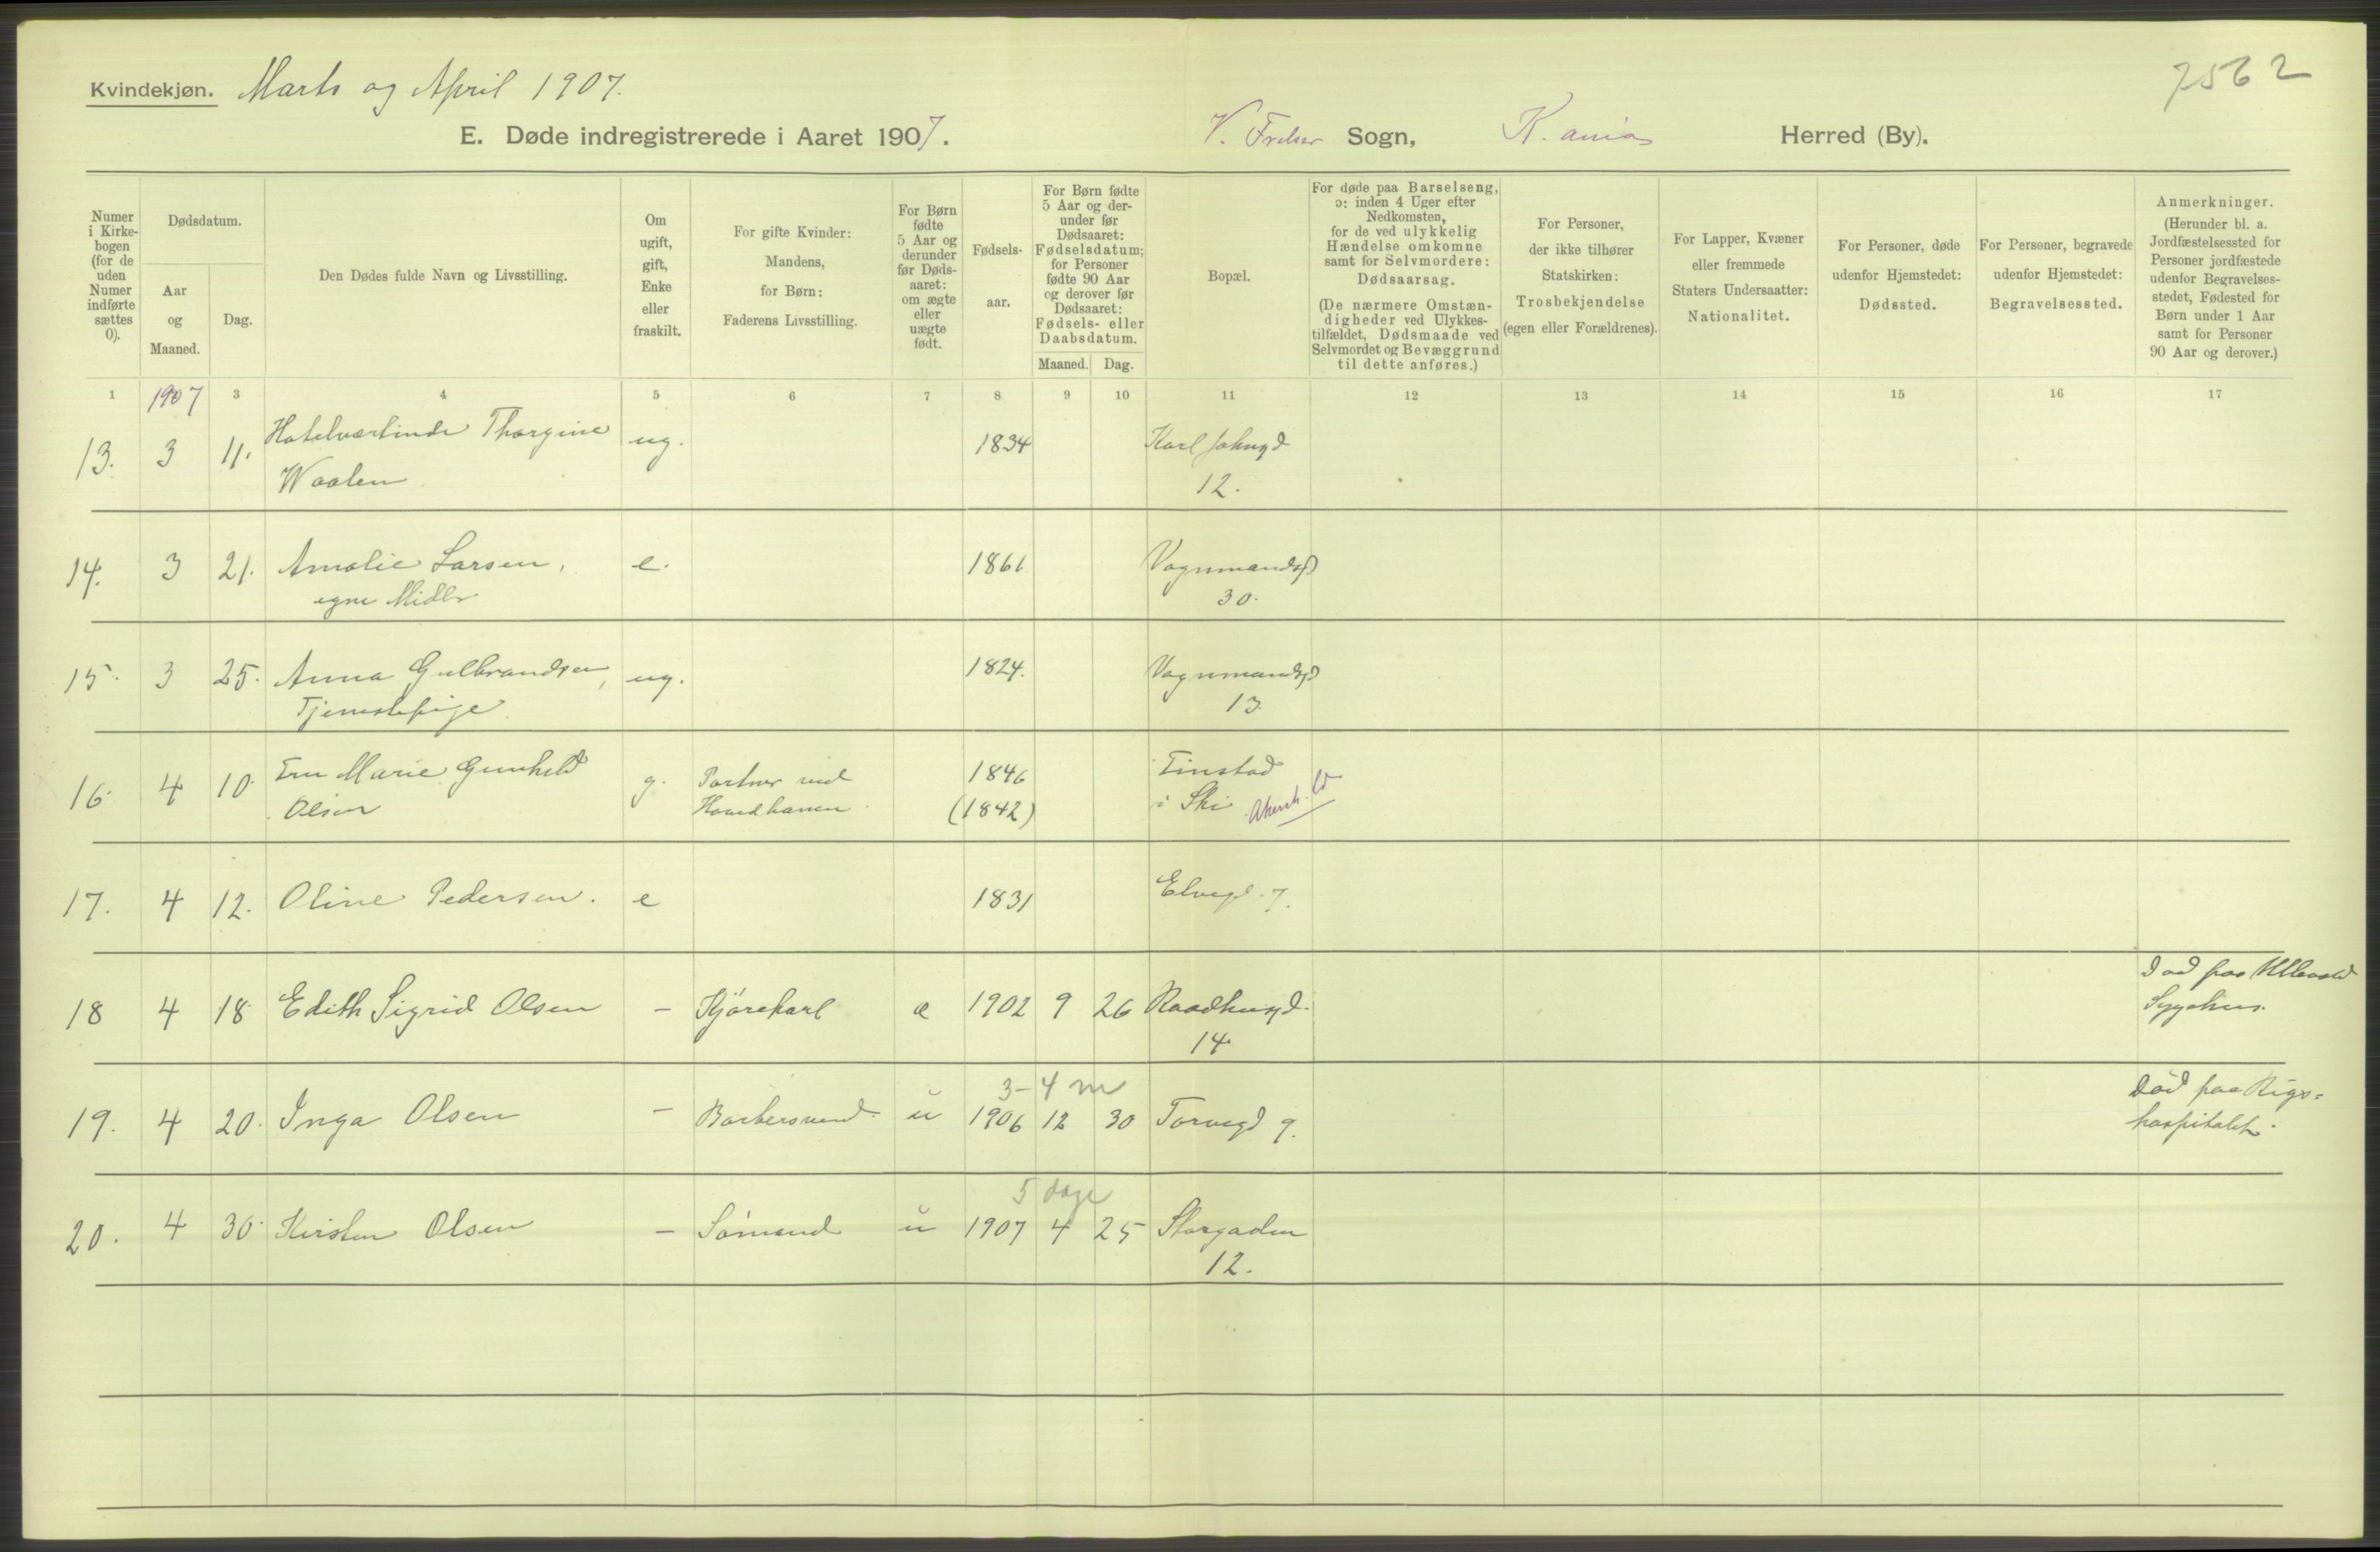 7562
Kvindekjøn. Marts og April 1907.
E. Døde indregistrerede i Aaret 1907. V. Frelser Sogn, K.ania Herred (By).
Numer i Kirke-bogen (for de uden Numer indførte sættes 0).
Dødsdatum.
Aar og Maaned.
Dag.
Den Dødes fulde Navn og Livsstilling.
Om ugift, gift, Enke eller fraskilt.
For gifte Kvinder: Mandens, for Børn: Faderens Livsstilling.
For Børn fødte 5 Aar og derunder før Døds-aaret: om ægte eller uægte født.
Fødsels-aar.
For Børn fødte 5 Aar og der-under før Dødsaaret: Fødselsdatum; for Personer fødte 90 Aar og derover før Dødsaaret: Fødsels- eller Daabsdatum.
Maaned. Dag.
Bopæl.
For døde paa Barselseng, ɔ: inden 4 Uger efter Nedkomsten, for de ved ulykkelig Hændelse omkomne samt for Selvmordere: Dødsaarsag. (De nærmere Omstæn-digheder ved Ulykkes-tilfældet, Dødsmaade ved Selvmordet og Bevæggrund til dette anføres.)
For Personer, der ikke tilhører Statskirken: Trosbekjendelse (egen eller Forældrenes).
For Lapper, Kvæner eller fremmede Staters Undersaatter: Nationalitet.
For Personer, døde udenfor Hjemstedet: Dødssted.
For Personer, begravede udenfor Hjemstedet: Begravelsessted.
Anmerkninger. (Herunder bl. a. Jordfæstelsessted for Personer jordfæstede udenfor Begravelses-stedet, Fødested for Børn under 1 Aar samt for Personer 90 Aar og derover.)
1 1907 3 4 5 6 7 8 9 10 11 12 13 14 15 16 17
13. 3 11. Hotelværtinde Thorgine ug. 1834 Karl Johngd
Waalen 12.
14. 3 21. Amalie Larsen, e. 1861 Vognmandsgd
egne Midler 30.
15. 3 25. Anna Gulbrandsen, ug. 1824. Vognmandsgd
Tjenestepige 13.
16. 4 10. Fru Marie Gunhild g. Portner ved 1846 Finstad
Olsen (1842) i Ski Akersh.
17. 4 12. Oline Pedersen. e 1831 Elvegd. 7.
18 4 18. Edith Sigrid Olsen – Kjørekarl æ 1902 9 26 Raadhusgd. Død paa Ullevold
14 Sygehus.
3-4 m
19. 4 20. Inga Olsen – Barbersvend u 1906 12 30 Torvegd 9. Død paa Rigs=
hospitalet.
5 dage
20. 4 30. Kirsten Olsen – Sømand u 1907 4 25 Storgaden
12.